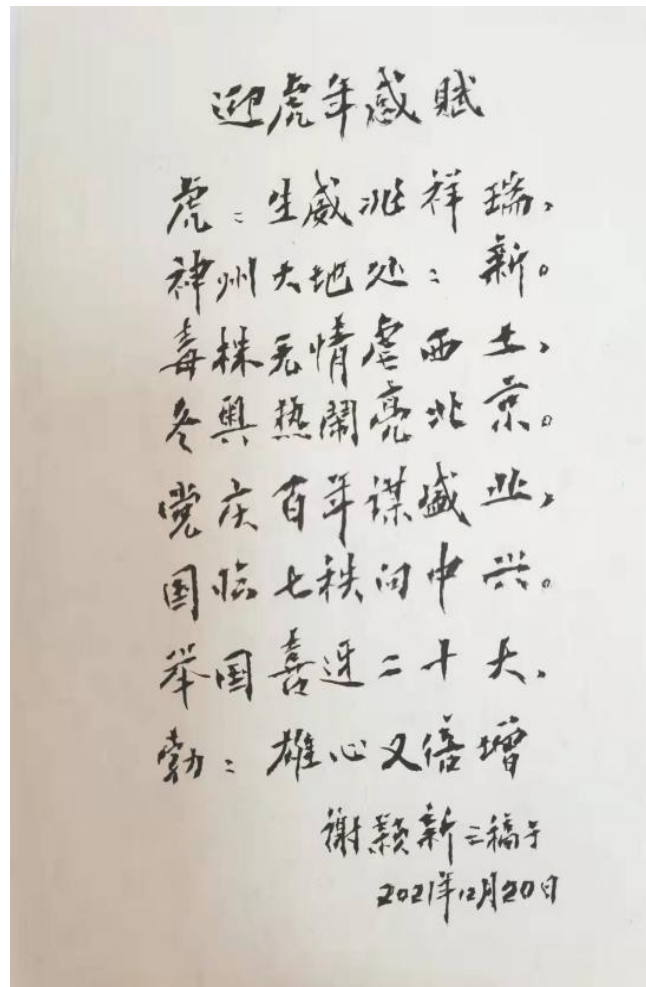 迎虎年感赋
虎：生威兆祥瑞，
神州大地处：新。
毒株无情虐西土，
冬奥热闹亮北京。
党庆百年谋盛业，
国临七秩向中兴。
举国喜迓二十大，
勃：雄心又倍增
谢颖新三稿于
2021年12月20日